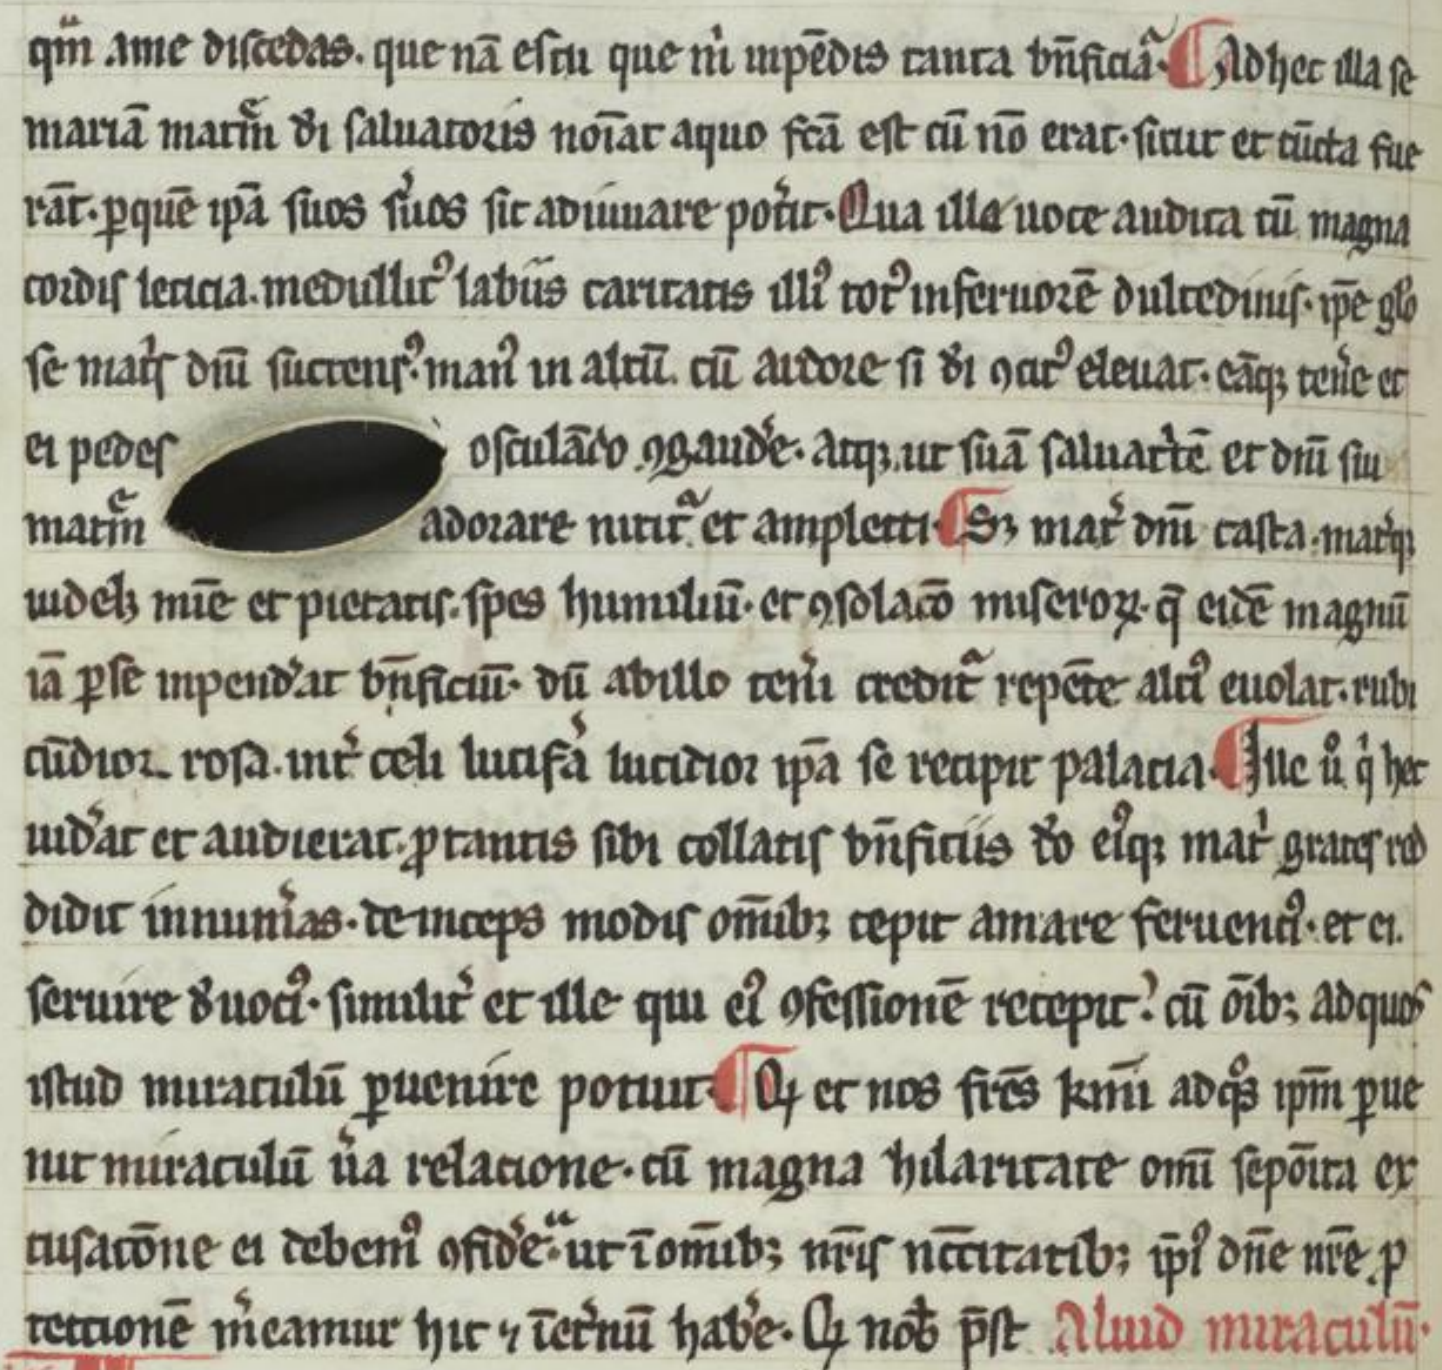 qm̄ ame discedas. que nā estu que m̄ inpēdis tanta bn̄ficia. Ad hec illa se
mariā matrem̄ dı̄ saluatoris noı̄at aquo fcā est cū nō erat. sicut et cūcta fue
rāt. ꝑquē ipā suos s̓uos sic adiuuare pot̓it. Qua ille uoce audita cū magna
cordis leticia. medullitꝰ labiis caritatis illiꝰ totꝰ inferuorē dulcedinis. ip̄e glo
se mat̓s dn̄i succensꝰ. manꝰ in altū. cū ardore si dı̄ ꝯcitꝰ eleuat. eāqꝫ ten̓e et
ei pedes osculādo ꝯgaud̓e. atqꝫ ut suā saluat̓cē et dn̄i sui
matrem̄ adorare nitit᷑ et amplecti. Sꝫ mat̓ dn̄i casta. mat̓qꝫ
uidelꝫ mı̄e et pietatis. spes humiliū. et ꝯsolacō miseroꝝ. q̄ eidē magnū
iā ꝑse inpend̓at bn̄ficiū. dū abillo ten̓i credit᷑ repēte alciꝰ euolat. rubi
cūdior rosa. int̓ celi lucif̓a lucidior ipā se recipit palacia. Ille u̓ qı̓ hec
uid̓at et audierat. ꝓ tantis sibi collatis bn̄ficiis dō eiꝰqꝫ mat̓ grates red
didit innum̓as. deinceps modis om̄ibꝫ cepit amare feruenciꝰ. et ei
seruire d̓uociꝰ. similit̓ et ille qui eiꝰ ꝯfessionē recepit. cū oı̄bꝫ adquos
istud miraculū ꝑuenire potuit. Qꝫ et nos frēs kmı̄ adqͦs ipm̄ ꝑue
nit miraculū ūa relacione. cū magna hilaritate omı̄ sepoı̄ta ex
cusacōne ei debemꝰ ꝯfid̓e. ut ı̄ om̄ibꝫ nr̄is nc̄citatibꝫ ip̄iꝰ dn̄e nr̄e ꝓ
tectionē m̓eamur hic ⁊ ı̄et̓nū hab̓e. Qꝫ nob̄ p̄st Aliud miraculū.